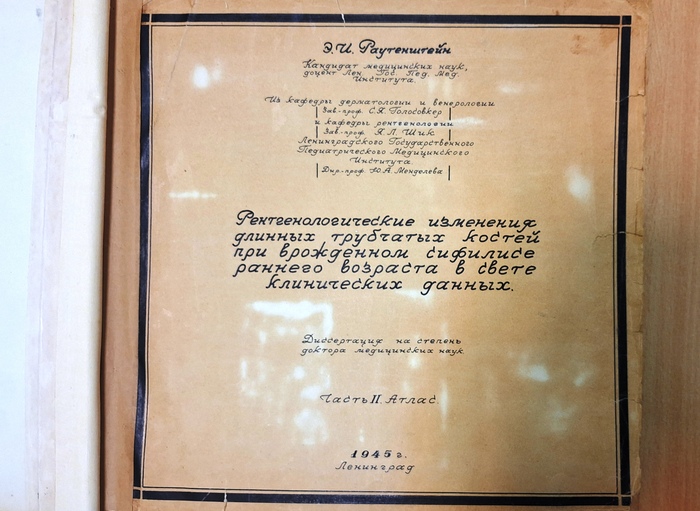 Э. И. Раутенштейн
Кандидат медицинских наук,
доцент Лен. Гос. Пед. Мед.
Института.
Из кафедры дерматологии и венерологии
Зав.-проф. С.Я. Голосовкер
и кафедры рентгенологии
Зав.-проф. Я.Л. Шик
Ленинградского Государственного
Педиатрического Медицинского
Института
Дир.-проф. Ю.А. Менделева
Рентгенологические изменения
длинных трубчатых костей
при врожденном сифилисе
раннего возраста в свете
клинических данных.
Диссертация на степень
доктора медицинских наук
Часть II. Атлас.
1945 г.
Ленинград